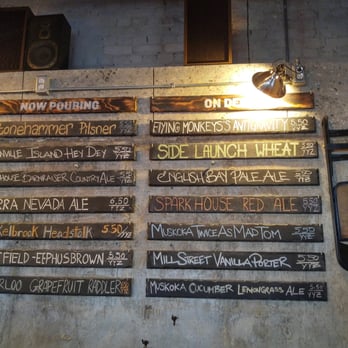 NOW POURING
tonehammer Pilsner
VILLE ISLAND HEY DEY
HOUSE BARNRAISER COUNTRY ALE
RRA NEVADA ALE 6.50
elbrook Headstock 5.50
FIELD-EEPHUS BROWN
RLOO GRAPEFRUIT RADDLER
ON DE
FLYING MONKEYS ANTIGRAVITY 5.50
SIDE LAUNCH WHEAT 5.50
ENGLISH BAY PALE ALE 5.50
SPARKHOUSE RED ALE 5.50
MUSKOKA TWICE AS MAD TOM
MILL STREET VANILLA PORTER 5.50
MUSKOKA CUCUMBER LEMONGRASS ALE